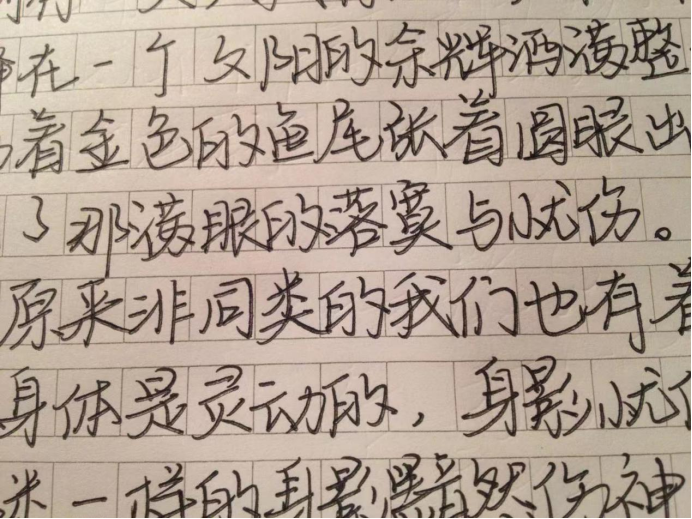 在一个夕阳的余辉洒满整
着金色的鱼尾张着圆眼出
了那满眼的落寞与忧伤。
原来非同类的我们也有着
身体是灵动的，身影忧
一样的身影黯然伤神